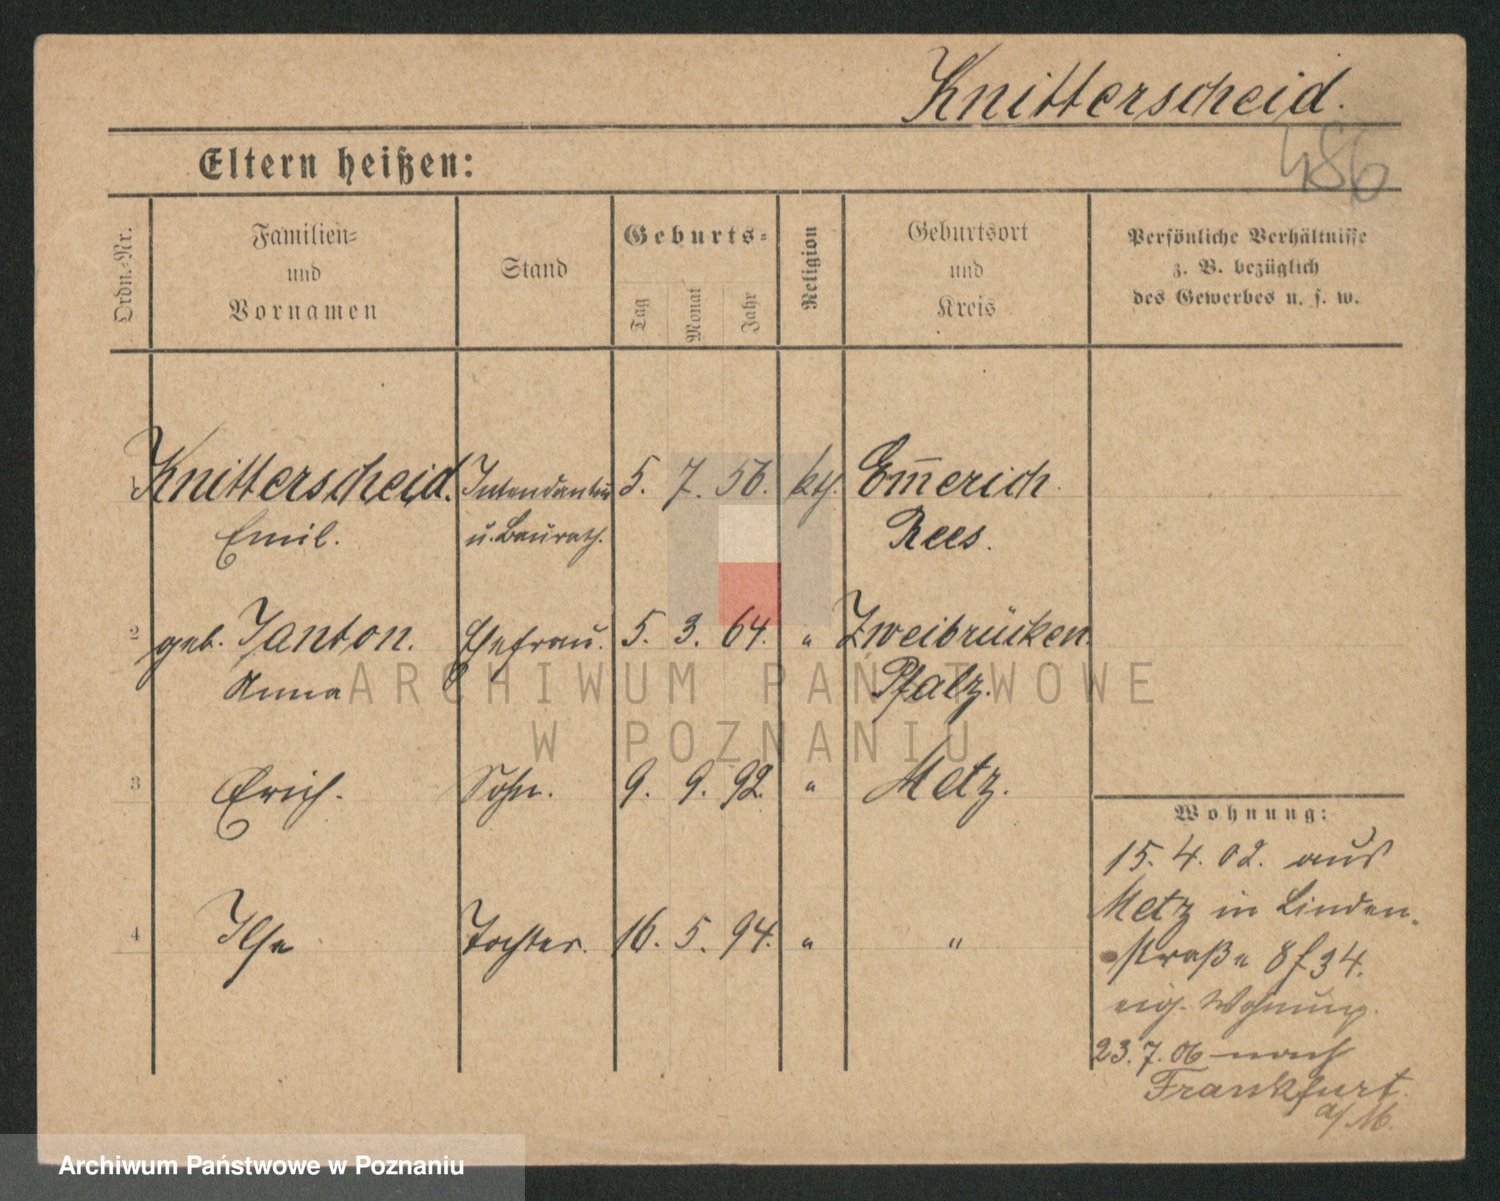 Knitterscheid.
486
Eltern heißen:
Ordn.-Nr.
Familien-
und
Vornamen
Stand
Geburts-
Tag
Monat
Jahr
Religion
Geburtsort
und
Kreis
Persönliche Verhältnisse
z. B. bezüglich
des Gewerbes u. s. w.
Knitterscheid. 5. 7. 56. Em̅erich
Emil. u. Baurath. Rees.
2 geb. Janton. Ehefrau. 5. 3. 64. " Zweibrücken
Anna Pfalz.
3 Erich. Sohn. 9. 9. 92. " Metz.
4 Ilse Tochter. 16. 5. 94. " "
Wohnung:
15. 4. 02. aus
Metz in Linden-
straße 8 34.
eig. Wohnung.
23. 7. 06 nach
Frankfurt
a/M.
ARCHIWUM PAŃSTWOWE
W POZNANIU
Archiwum Państwowe w Poznaniu